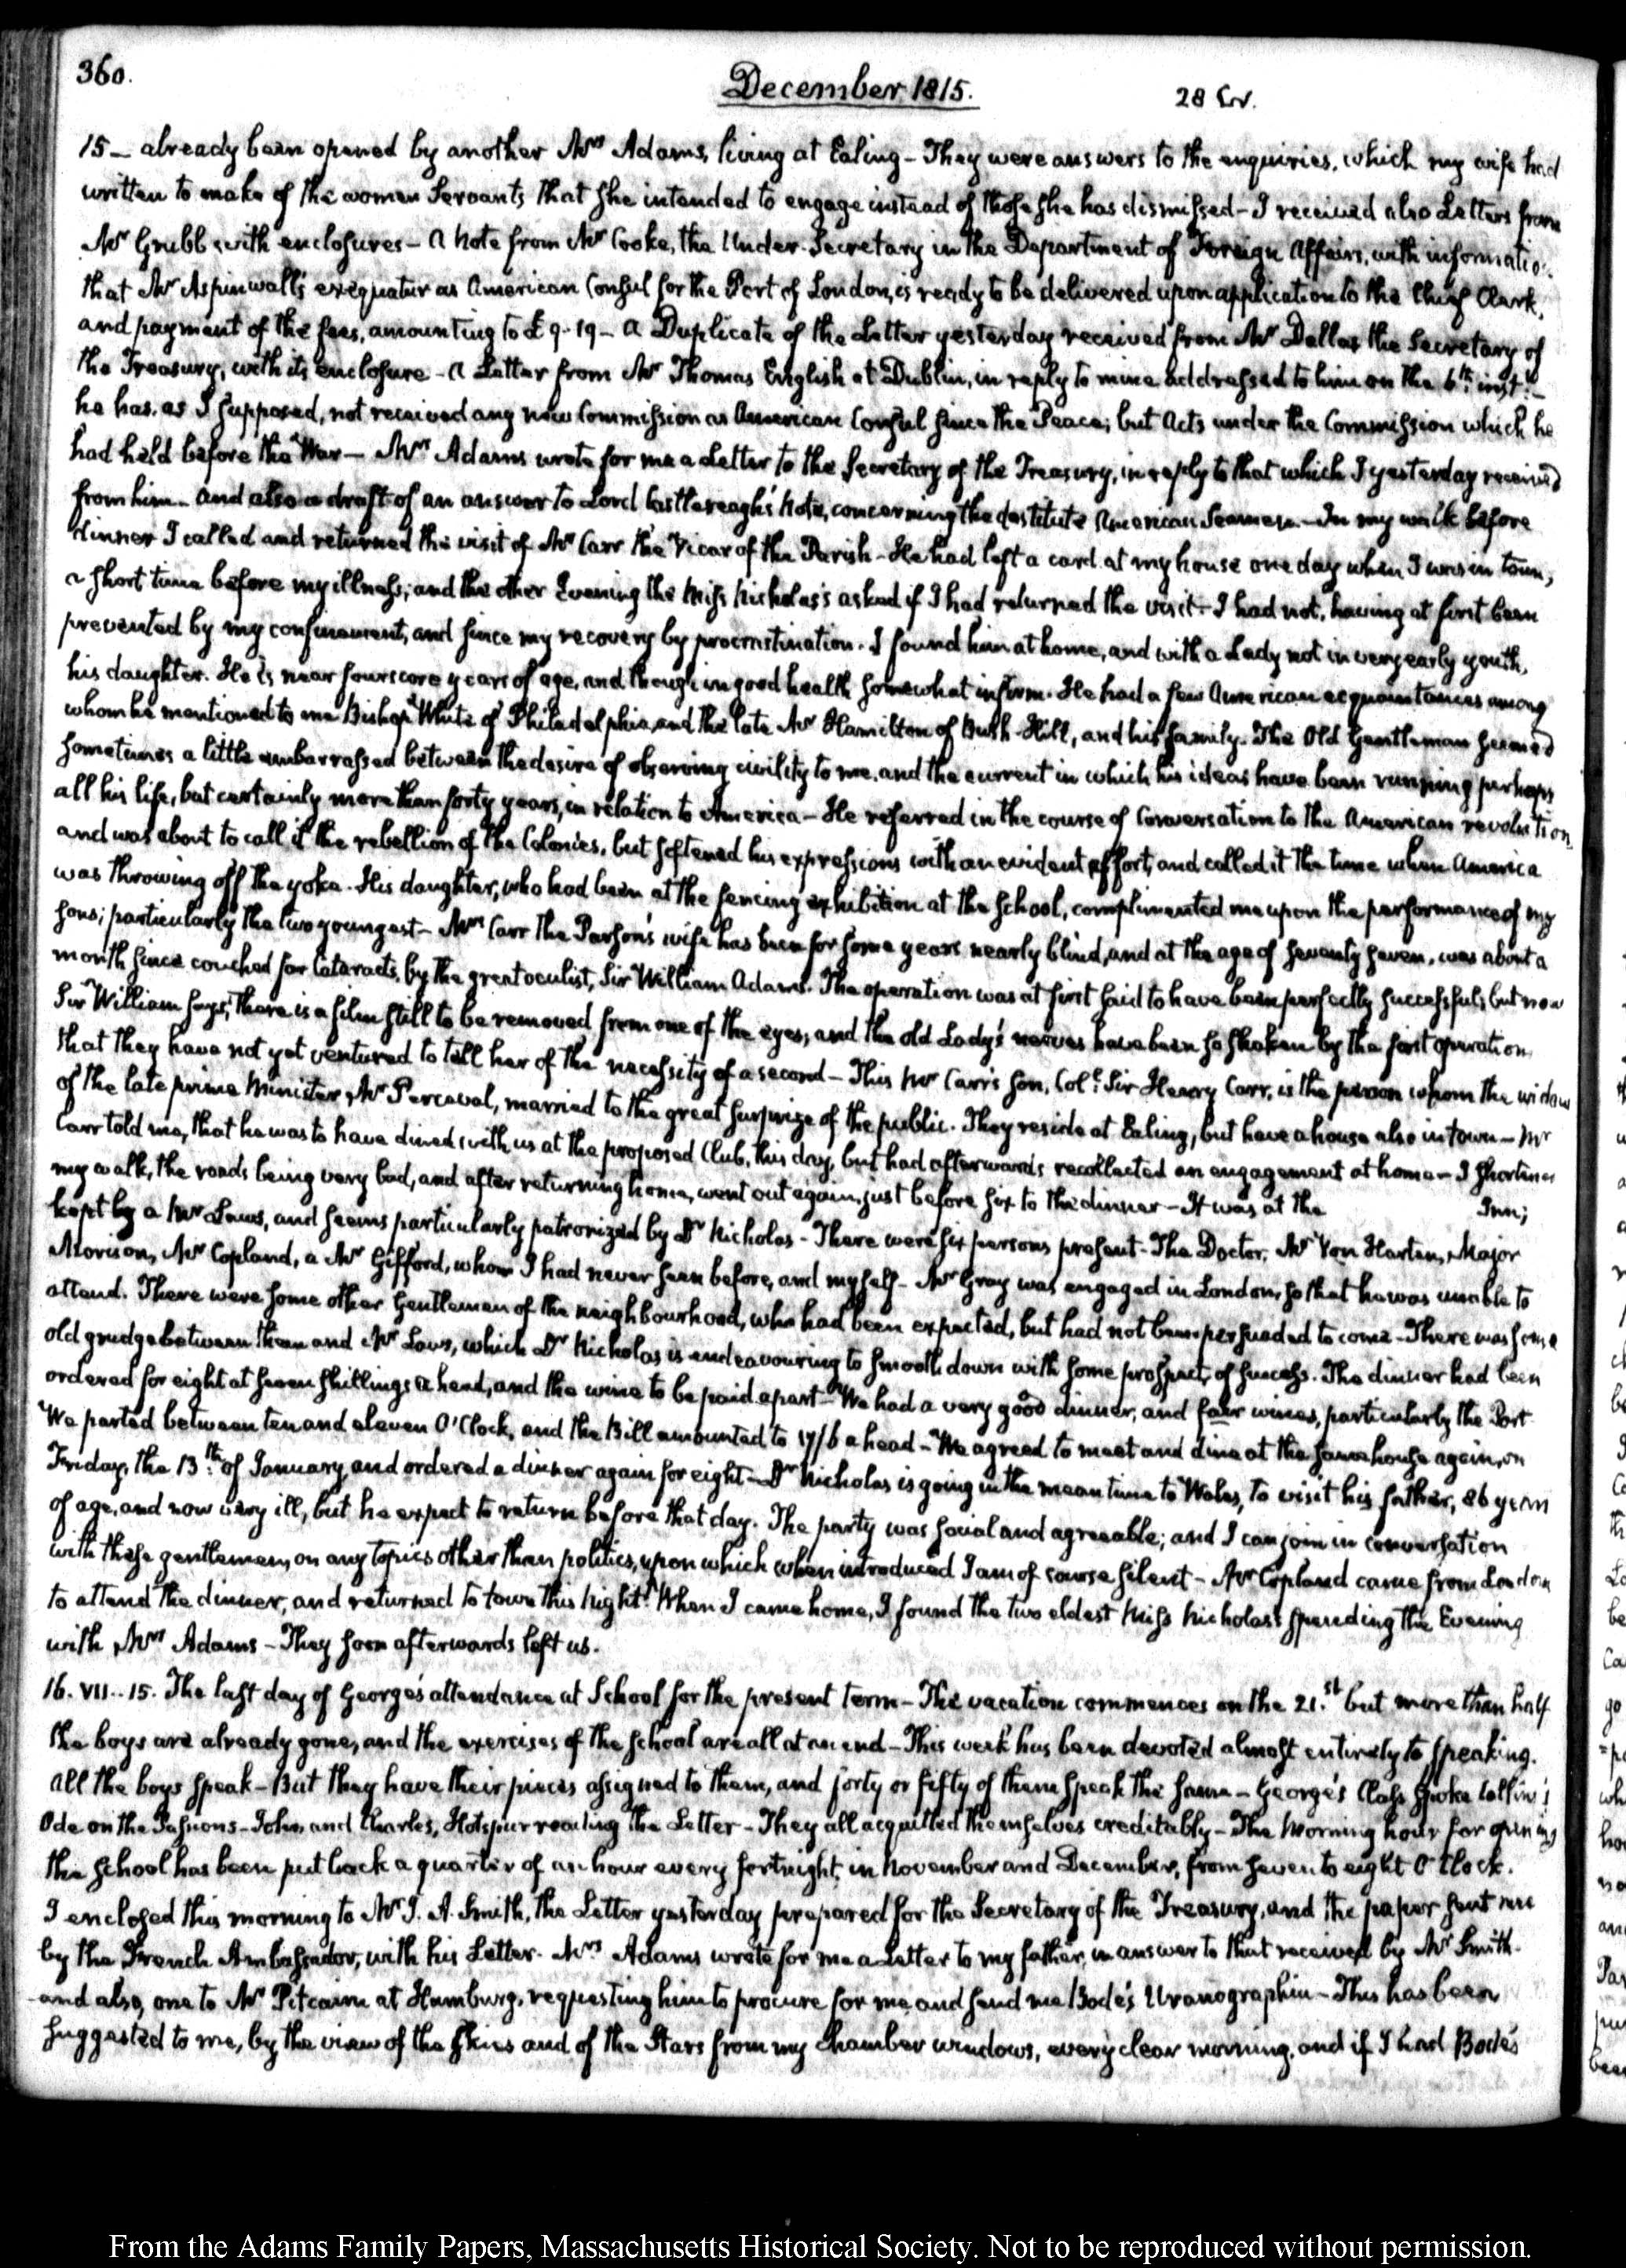 360.
December 1815.
28
15 — already been opened by another Mrs Adams, living at Ealing — They were answers to the enquiries, which my wife had
written to make of the women Servants that she intended to engage instead of those she has dismissed — I received also Letters from
Mr Grubb with enclosures — A Note from Mr Cooke, the Under-Secretary in the Department of Foreign Affairs, with information
that Mr Aspinwall's exequatur as American Consul for the Port of London, is ready to be delivered upon application to the Chief Clerk,
and payment of the fees, amounting to £9-19 — A Duplicate of the Letter yesterday received from Mr Dallas the Secretary of
the Treasury, with its enclosure — A Letter from Mr Thomas English at Dublin, in reply to mine addressed to him on the 6th inst. —
he has, as I supposed, not received any new Commission as American Consul since the Peace; but Acts under the Commission which he
had held before the War — Mrs Adams wrote for me a Letter to the Secretary of the Treasury, in reply to that which I yesterday received
from him — and also a draft of an answer to Lord Castlereagh's Note, concerning the destitute American Seamen. — In my walk before
dinner I called and returned the visit of Mr Carr the Vicar of the Parish — He had left a card at my house one day when I was in town,
a short time before my illness; and the other Evening the Miss Nicholas's asked if I had returned the visit — I had not, having at first been
prevented by my confinement, and since my recovery by procrastination. I found him at home, and with a Lady not in very early youth,
his daughter. He is near fourscore years of age, and though in good health somewhat infirm. He had a few American acquaintances among
whom he mentioned to me Bishop White of Philadelphia, and the late Mr Hamilton of Bush-Hill, and his family. The Old Gentleman seemed
sometimes a little embarrassed between the desire of observing civility to me, and the current in which his ideas have been running perhaps
all his life, but certainly more than forty years, in relation to America — He referred in the course of Conversation to the American revolution
and was about to call it the rebellion of the Colonies, but softened his expressions with an evident effort, and called it the time when America
was throwing off the yoke. His daughter, who had been at the fencing exhibition at the School, complimented me upon the performance of my
sons; particularly the two youngest — Mrs Carr the Parson's wife has been for some years nearly blind, and at the age of seventy seven, was about a
month since couched for Cataracts, by the great oculist, Sir William Adams. The operation was at first said to have been perfectly successful; but now
Sir William says, there is a film still to be removed from one of the eyes; and the old Lady's nerves have been so shaken by the first operation,
that they have not yet ventured to tell her of the necessity of a second — This Mr Carr's son, Coll. Sir Henry Carr, is the person whom the widow
of the late prime Minister, Mr Perceval, married to the great surprize of the public. They reside at Ealing, but have a house also in town — Mr
Carr told me, that he was to have dined with us at the proposed Club, this day, but had afterwards recollected an engagement at home — I shortened
my walk, the roads being very bad, and after returning home, went out again, just before six to the dinner — It was at the Inn;
kept by a Mr Laws, and seems particularly patronized by Dr Nicholas — There were six persons present — The Doctor, Mr Von Harten, Major
Morison, Mr Copland, a Mr Gifford, whom I had never seen before, and myself — Mr Gray was engaged in London, so that he was unable to
attend. There were some other Gentlemen of the neighbourhood, who had been expected, but had not been persuaded to come — There was some
old grudge between them and Mr Laws, which Dr Nicholas is endeavouring to smooth down with some prospect of success. The dinner had been
ordered for eight at seven shillings a head, and the wine to be paid apart — We had a very good dinner, and fair wines, particularly the Port
We parted between ten and eleven O'Clock, and the Bill amounted to 17/6 a head — We agreed to meet and dine at the same house again, on
Friday, the 13th of January, and ordered a dinner again for eight — Dr Nicholas is going in the mean time to Wales, to visit his father, 86 years
of age, and now very ill, but he expect to return before that day. The party was social and agreeable; and I can join in conversation
with these gentlemen, on any topics other than politics, upon which when introduced I am of course silent — Mr Copland came from London
to attend the dinner, and returned to town this Night. When I came home, I found the two eldest Miss Nicholas's spending the Evening
with Mrs Adams — They soon afterwards left us.
16. VII..15. The last day of George's attendance at School for the present term — The vacation commences on the 21.st but more than half
the boys are already gone, and the exercises of the school are all at an end — This week has been devoted almost entirely to speaking.
All the boys speak — But they have their pieces assigned to them, and forty or fifty of them speak the same — George's Class spoke Collins's
Ode on the Passions — John, and Charles, Hotspur reading the Letter — They all acquitted themselves creditably — The Morning hour for opening
the School has been put back a quarter of an hour every fortnight, in November and December, from seven to eight O'Clock.
I enclosed this morning to Mr J. A. Smith, the Letter yesterday prepared for the Secretary of the Treasury, and the paper sent me
by the French Ambassador, with his Letter. Mrs Adams wrote for me a Letter to my father, in answer to that received by Mr Smith.
and also, one to Mr Pitcairn at Hamburg, requesting him to procure for me and send me Bode's Uranographia — This has been
suggested to me, by the view of the Skies and of the Stars from my Chamber windows, every clear morning, and if I had Bode's
From the Adams Family Papers, Massachusetts Historical Society. Not to be reproduced without permission.